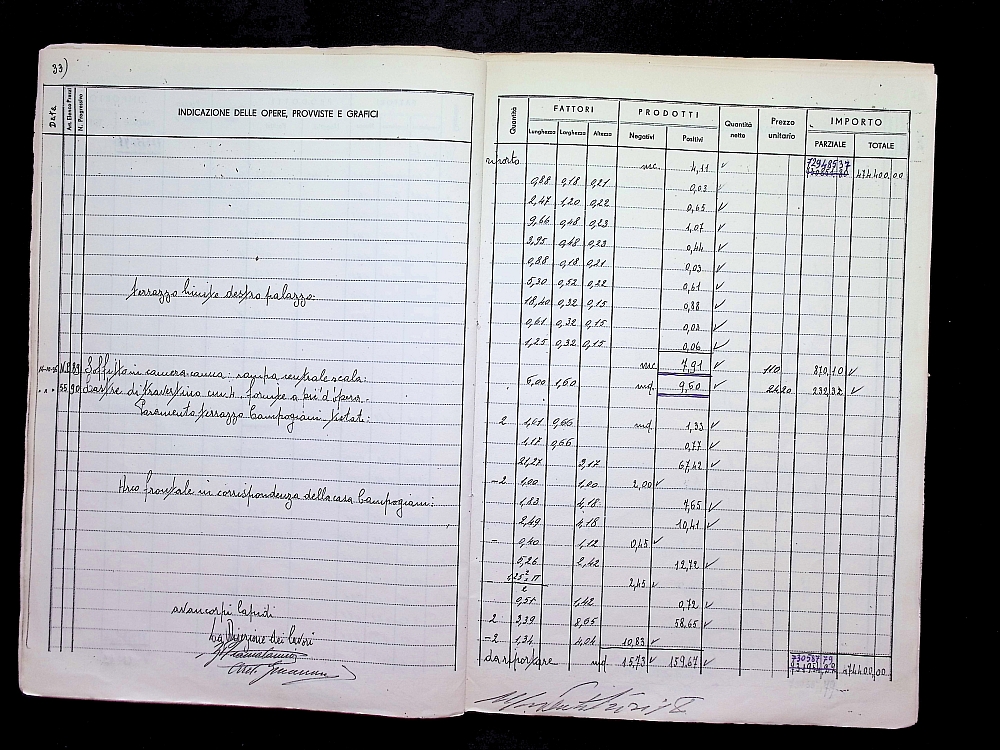 33)
Data
Art. Elenco Prezzi
N. Progressivo
INDICAZIONE DELLE OPERE, PROVVISTE E GRAFICI
Quantità
FATTORI
PRODOTTI
Quantità nette
Prezzo unitario
IMPORTO
Lunghezza Larghezza Altezza
Negativi Positivi
PARZIALE TOTALE
riporto mc. 4,11 72948537 474400,00
0,88 0,18 0,21 0,03
2,47 1,20 0,22 0,65
9,66 0,48 0,23 1,07
3,95 0,48 0,23 0,44
0,88 0,18 0,21 0,03
terrazzo limite destro palazzo: 5,30 0,52 0,22 0,61
18,40 0,32 0,15 0,88
0,61 0,32 0,15 0,03
1,25 0,32 0,15 0,06
89 Soffitto in camera canna: rampa centrale scala: mc 7,91 110 870,10
" " " 55 90 Lastre di travertino cm. 4, fornite a piè d'opera. 6,00 1,60 mq. 9,50 24,20 232,32
Paramento terrazzo Campogiani Totati: 2 1,01 0,66 mq. 1,33
1,17 0,66 0,77
21,27 3,17 67,42
-2 1,00 1,00 2,00
Arco frontale in corrispondenza della casa Campogiani: 1,83 4,18 7,65
2,49 4,18 10,41
- 0,40 1,12 0,45
5,26 2,42 12,72
- 1,25² π / 2 2,45
0,51 1,42 0,72
avancorpi laterali 2 3,39 8,65 58,65
La Direzione dei lavori -2 1,34 4,04 10,83
da riportare mq. 15,73 159,67 730587,79 474400,00